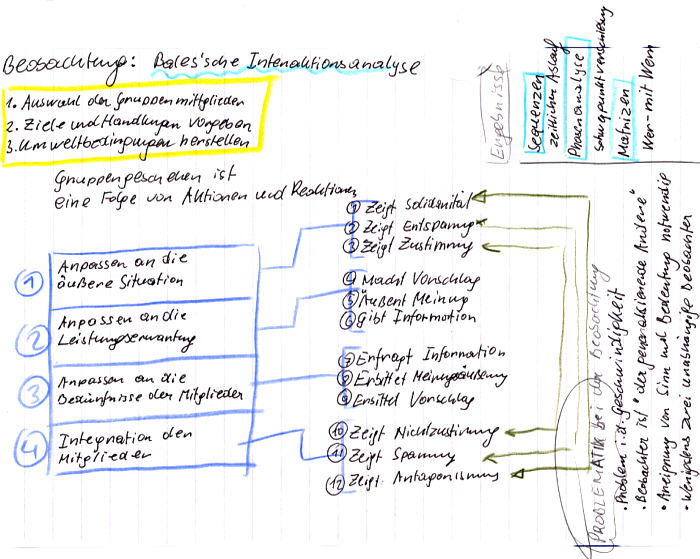 Beobachtung: Bales'sche Interaktionsanalyse
1. Auswahl der Gruppenmitglieder
2. Ziele und Handlungen vorgeben
3. Umweltbedingungen herstellen
Gruppengeschehen ist
eine Folge von Aktionen und Reaktionen
1 Anpassen an die
äußere Situation
2 Anpassen an die
Leistungserwartung
3 Anpassen an die
Bedürfnisse der Mitglieder
4 Integration der
Mitglieder
1 Zeigt Solidarität
2 Zeigt Entspannung
3 Zeigt Zustimmung
4 Macht Vorschlag
5 Äußert Meinung
6 Gibt Information
7 Erfragt Information
8 Erbittet Meinungsäußerung
9 Erbittet Vorschlag
10 Zeigt Nichtzustimmung
11 Zeigt Spannung
12 Zeigt Antagonismus
Ergebnisse
Sequenzen
zeitlicher Ablauf
Phasenanalyse
Schwerpunktverschiebung
Matrizen
Wer-mit Wem
PROBLEMATIK bei der Beobachtung
• Problem i.d. Geschwindigkeit
• Beobachter ist "der generalisierende Andere"
• Aneignung von Sinn und Bedeutung notwendig
• wenigstens zwei unabhängige Beobachter